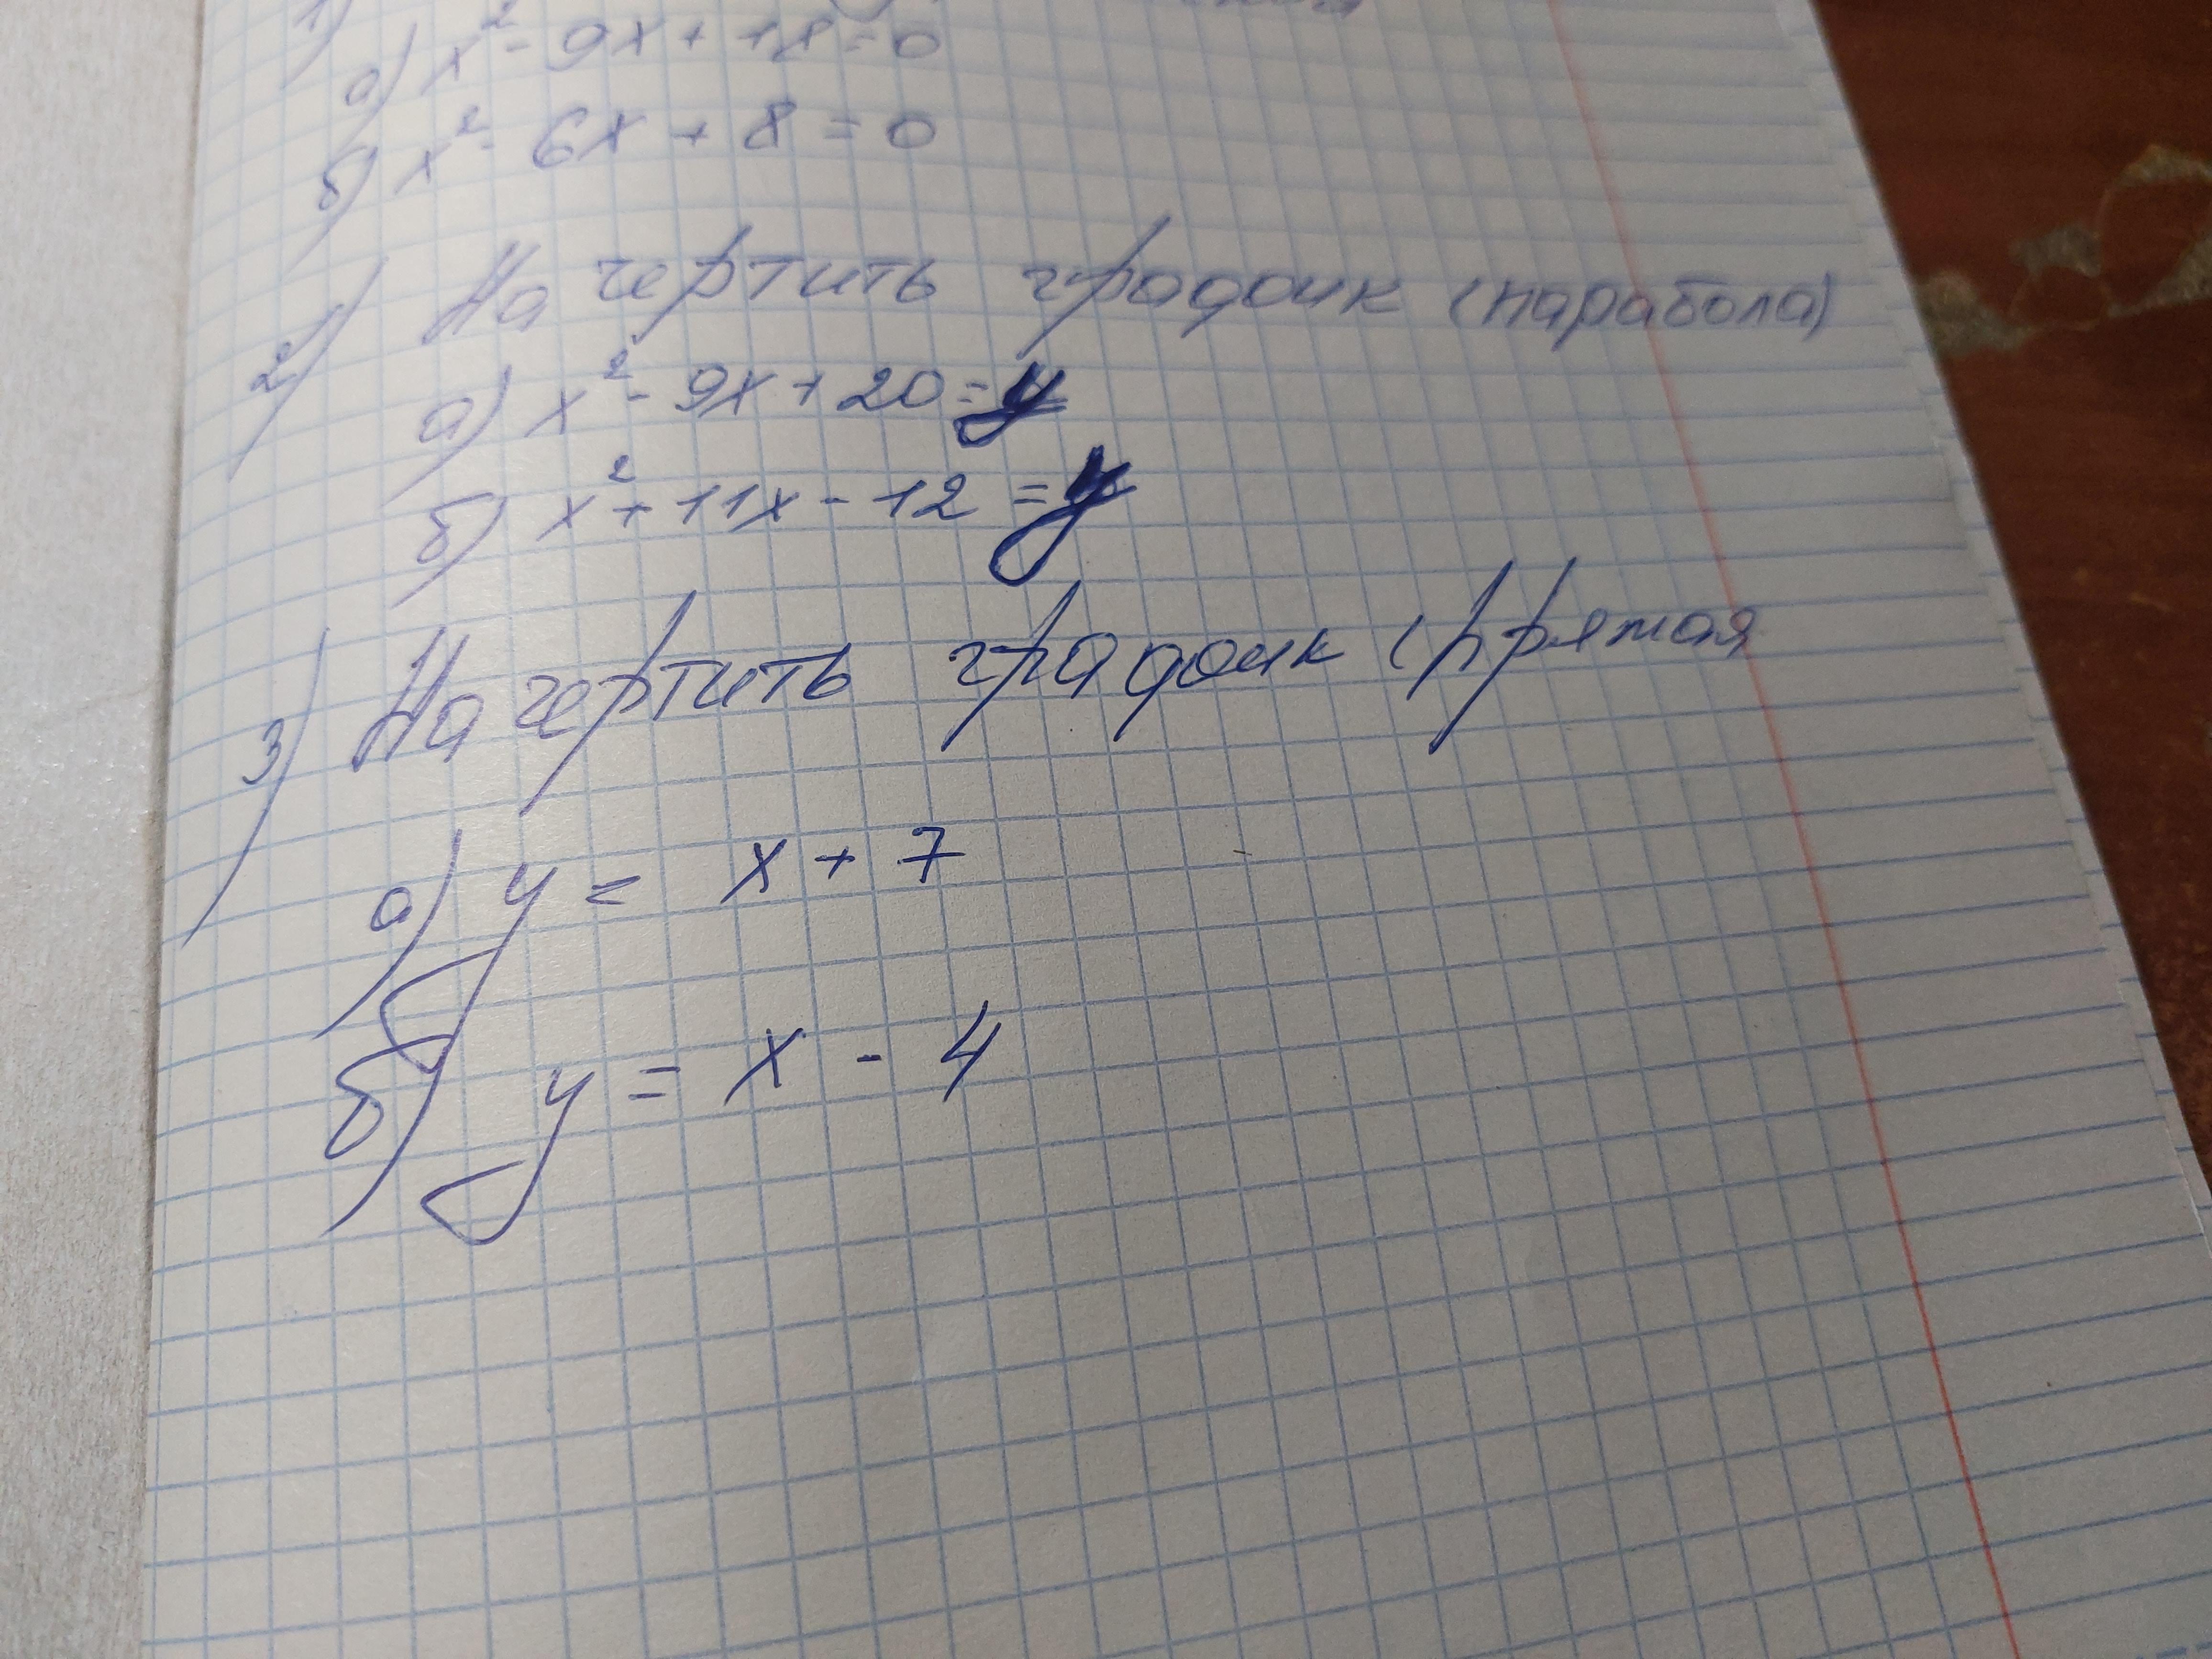 1)
а) x² - 9x + 18 = 0
б) x² - 6x + 8 = 0
2) Начертить график (парабола)
а) x² - 9x + 20 = y
б) x² + 11x - 12 = y
3) Начертить график (прямая
а) y = x + 7
б) y = x - 4